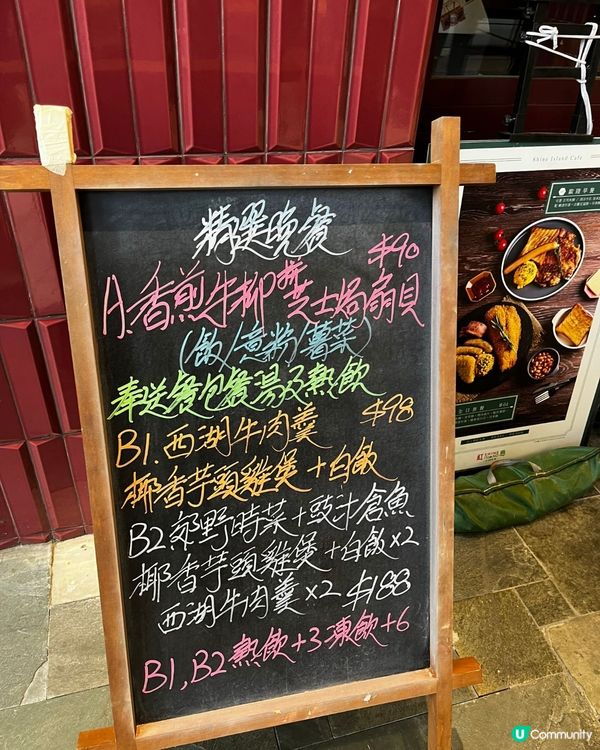 精選晚餐
$90
A.香煎牛柳拼芝士焗扇貝
(飯/意粉/薯菜)
奉送餐包餐湯及熱飲
B1.西湖牛肉羹 $98
椰香芋頭雞煲+白飯
B2郊野時菜+豉汁倉魚
椰香芋頭雞煲+白飯×2
西湖牛肉羹×2 $188
B1,B2熱飲+3凍飲+6
Shine Island Cafe
U Community